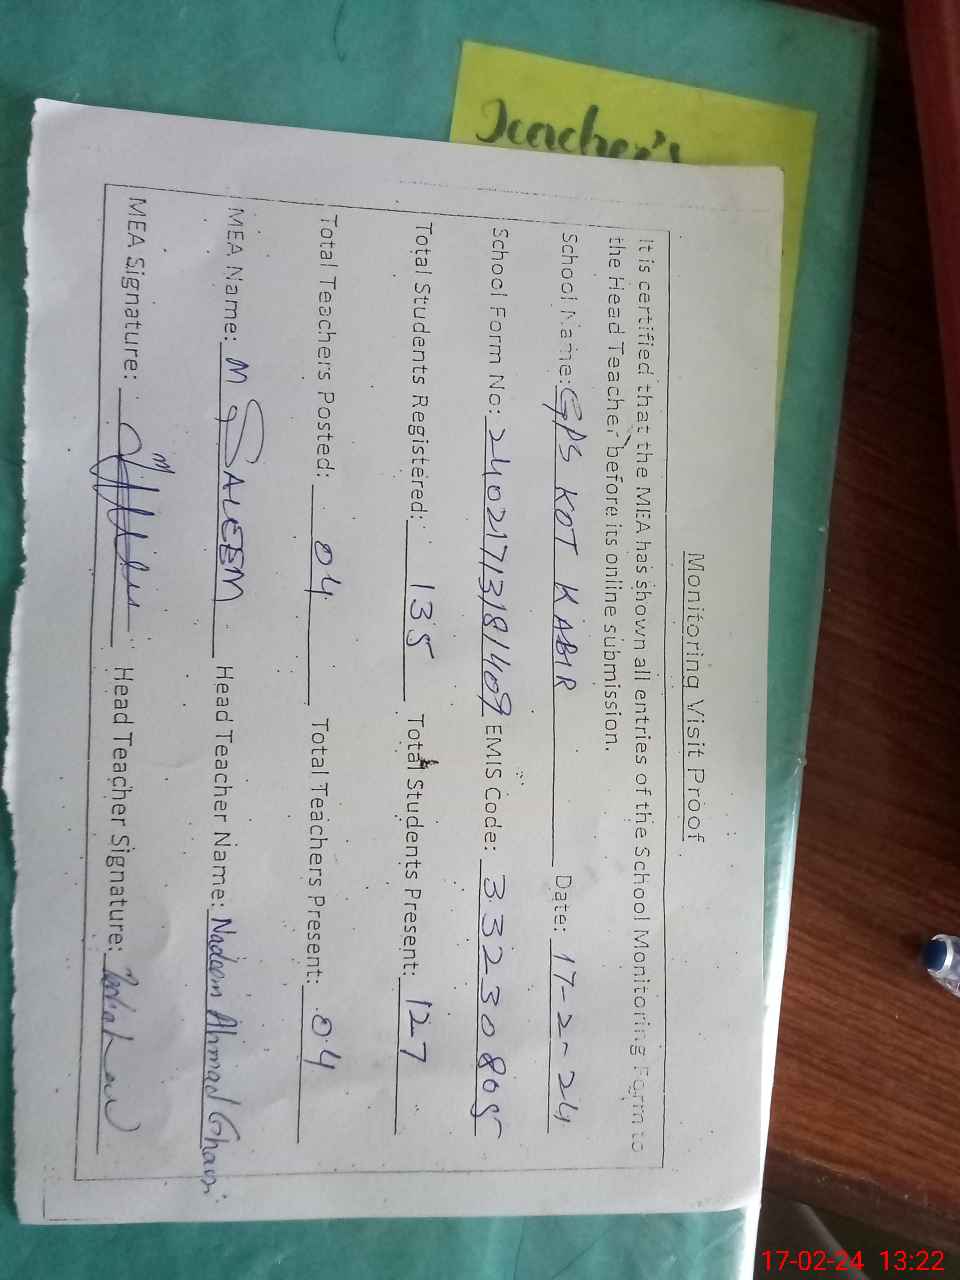 Teacher's
Monitoring Visit Proof
It is certified that the MEA has shown all entries of the School Monitoring Form to
the Head Teacher before its online submission.
School Name: GPS KOT KABIR Date: 17-2-24
School Form No: 24021713181409 EMIS Code: 33230805
Total Students Registered: 135 Total Students Present: 127
Total Teachers Posted: 04 Total Teachers Present: 04
MEA Name: M SALEEM Head Teacher Name: Nadeem Ahmad Ghauri
MEA Signature: Head Teacher Signature:
17-02-24 13:22